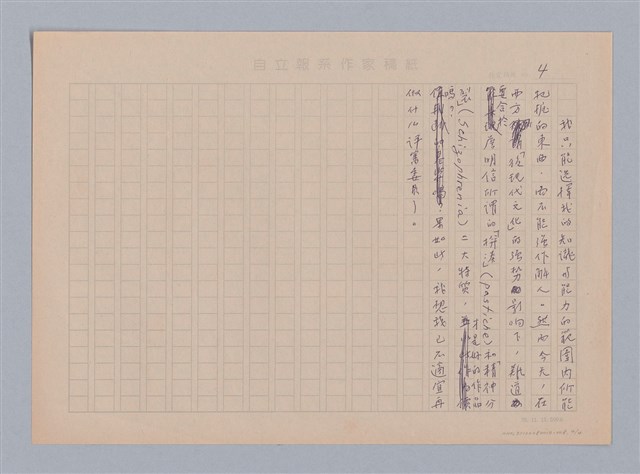 自立報系作家稿紙
4
我只能選擇我的知識与能力的範圍內所能
把握的東西，而不能強作解人。然而今天，在
西方「後現代文化」的強勢影响下，難道
要合於
詹明信所謂的「拼湊」(pastiche)和「精神分
裂」(Schizophrenia)二大特質，
才是好的作品
嗎？
果如此，我想我已不適宜再
做什么評審委員了。